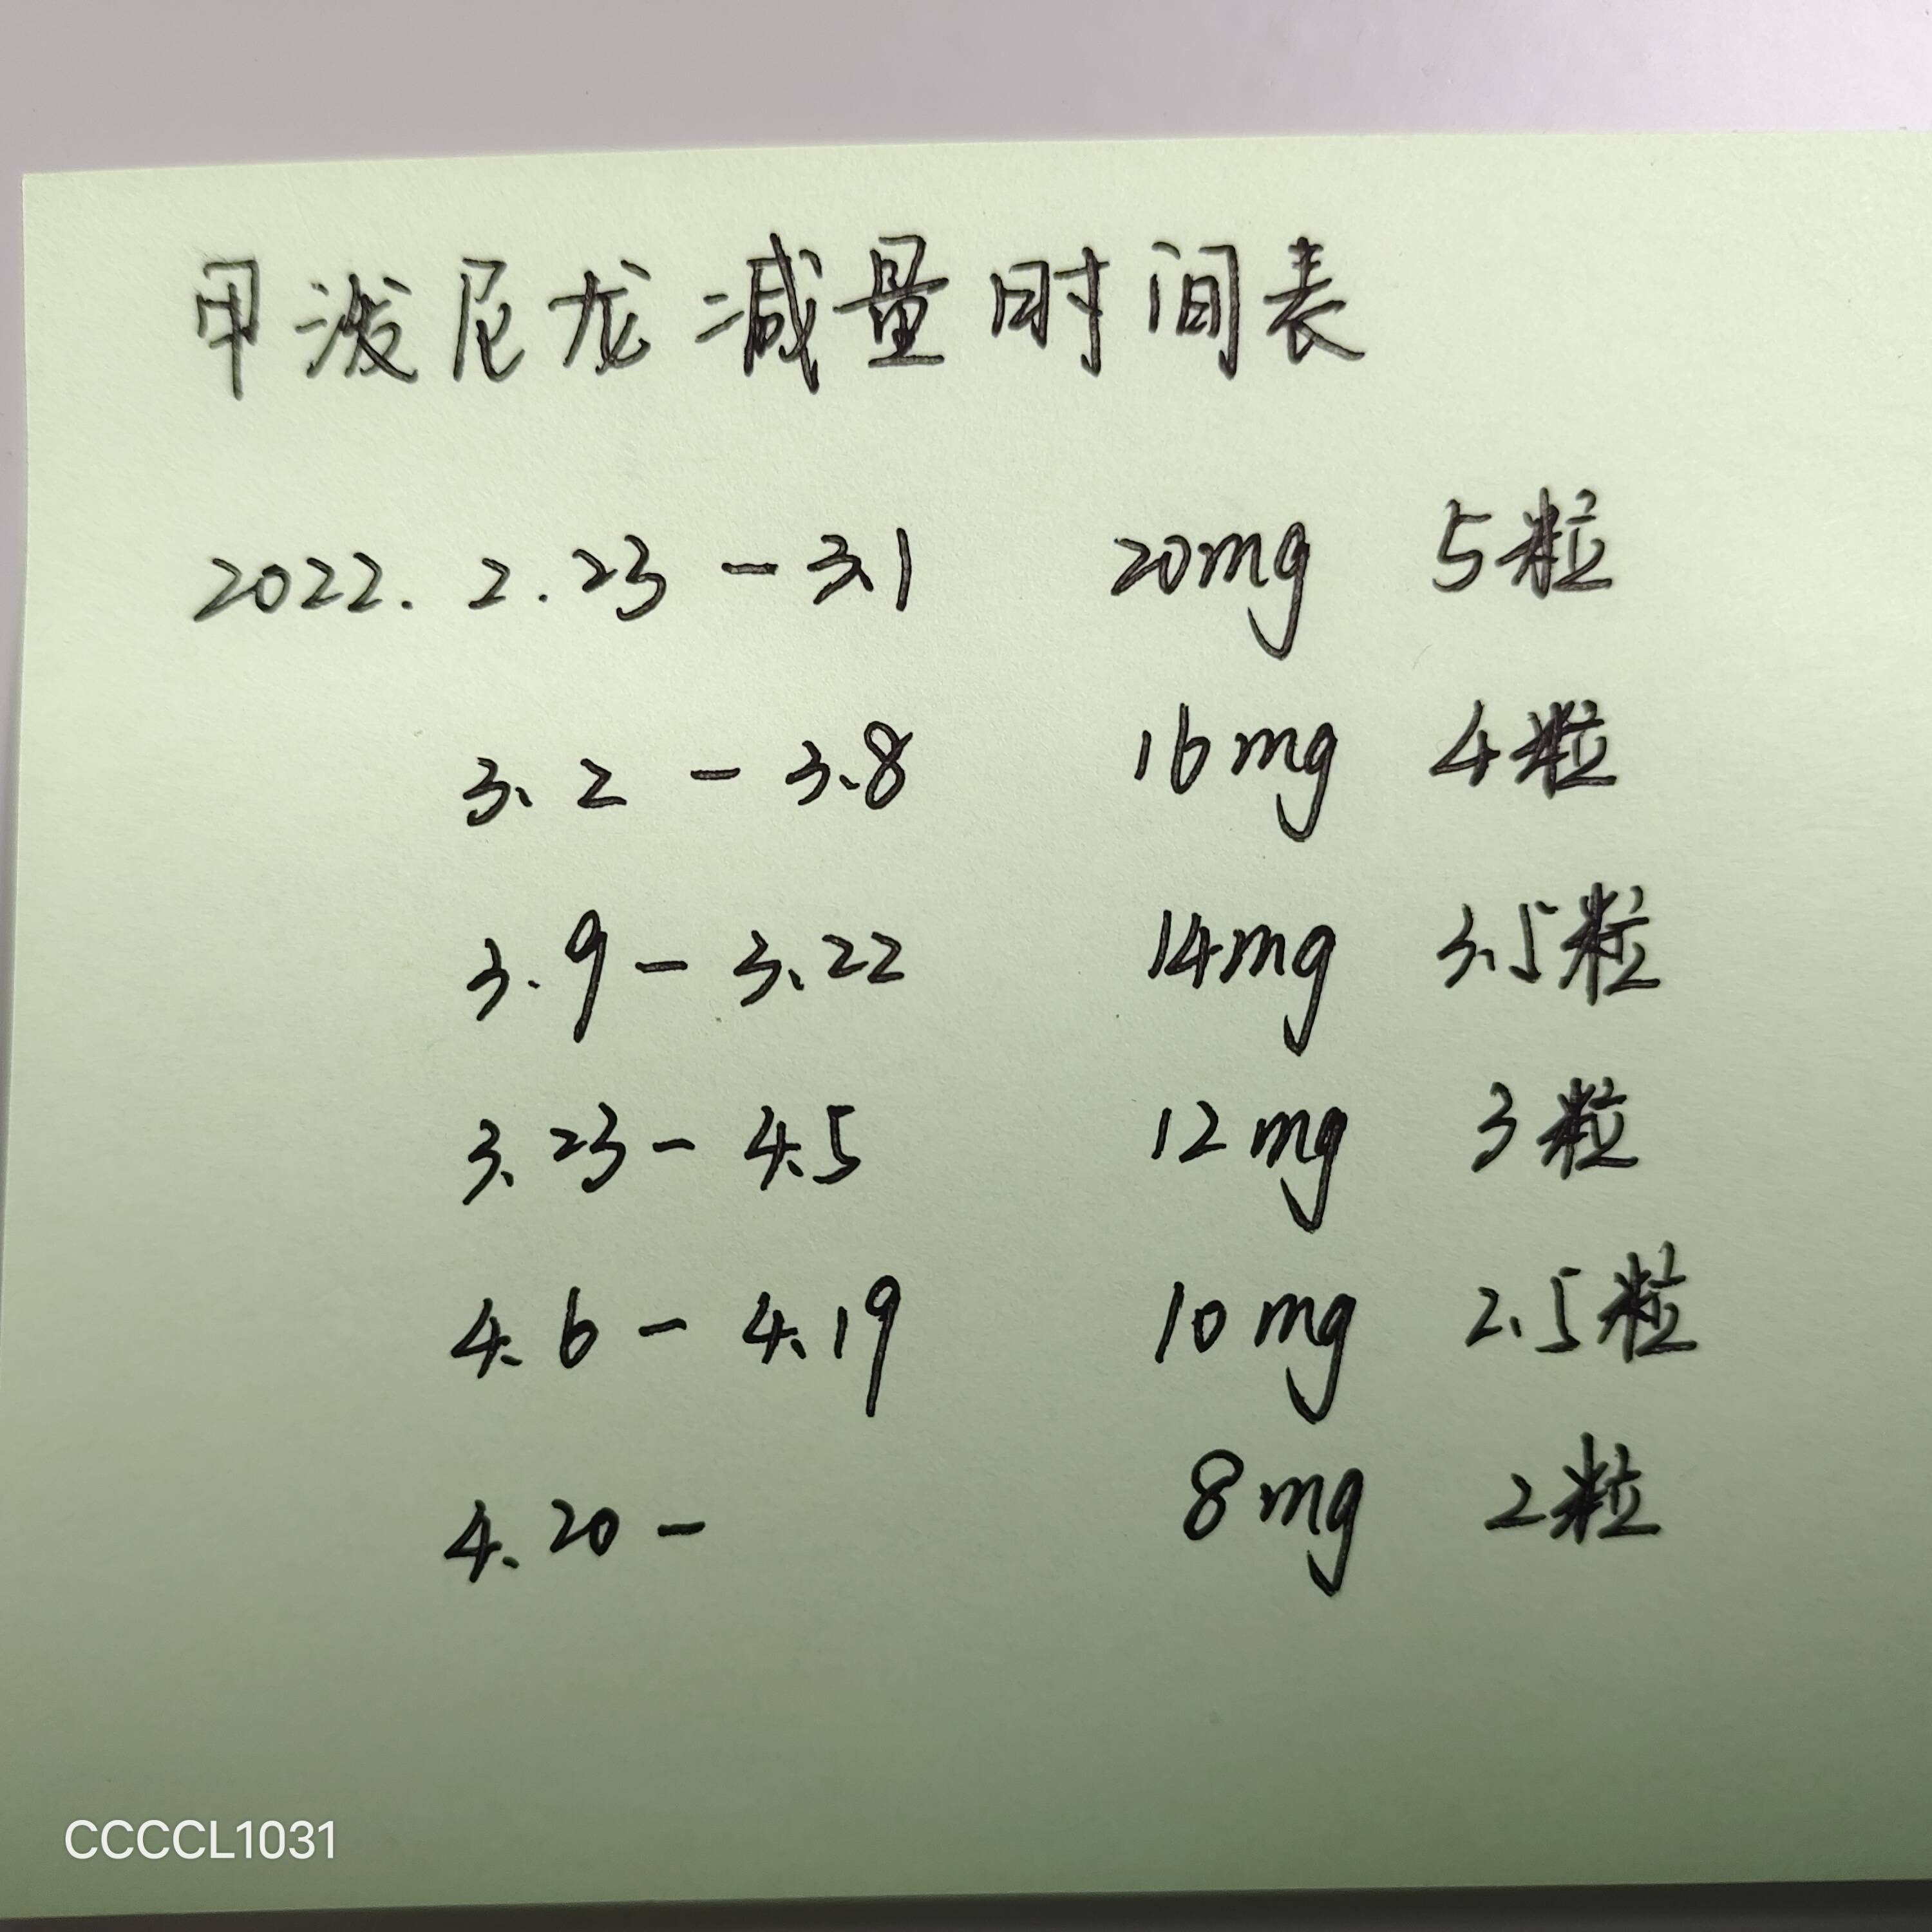 甲泼尼龙减量时间表
2022.2.23-3.1 20mg 5粒
3.2-3.8 16mg 4粒
3.9-3.22 14mg 3.5粒
3.23-4.5 12mg 3粒
4.6-4.19 10mg 2.5粒
4.20- 8mg 2粒
CCCCL1031